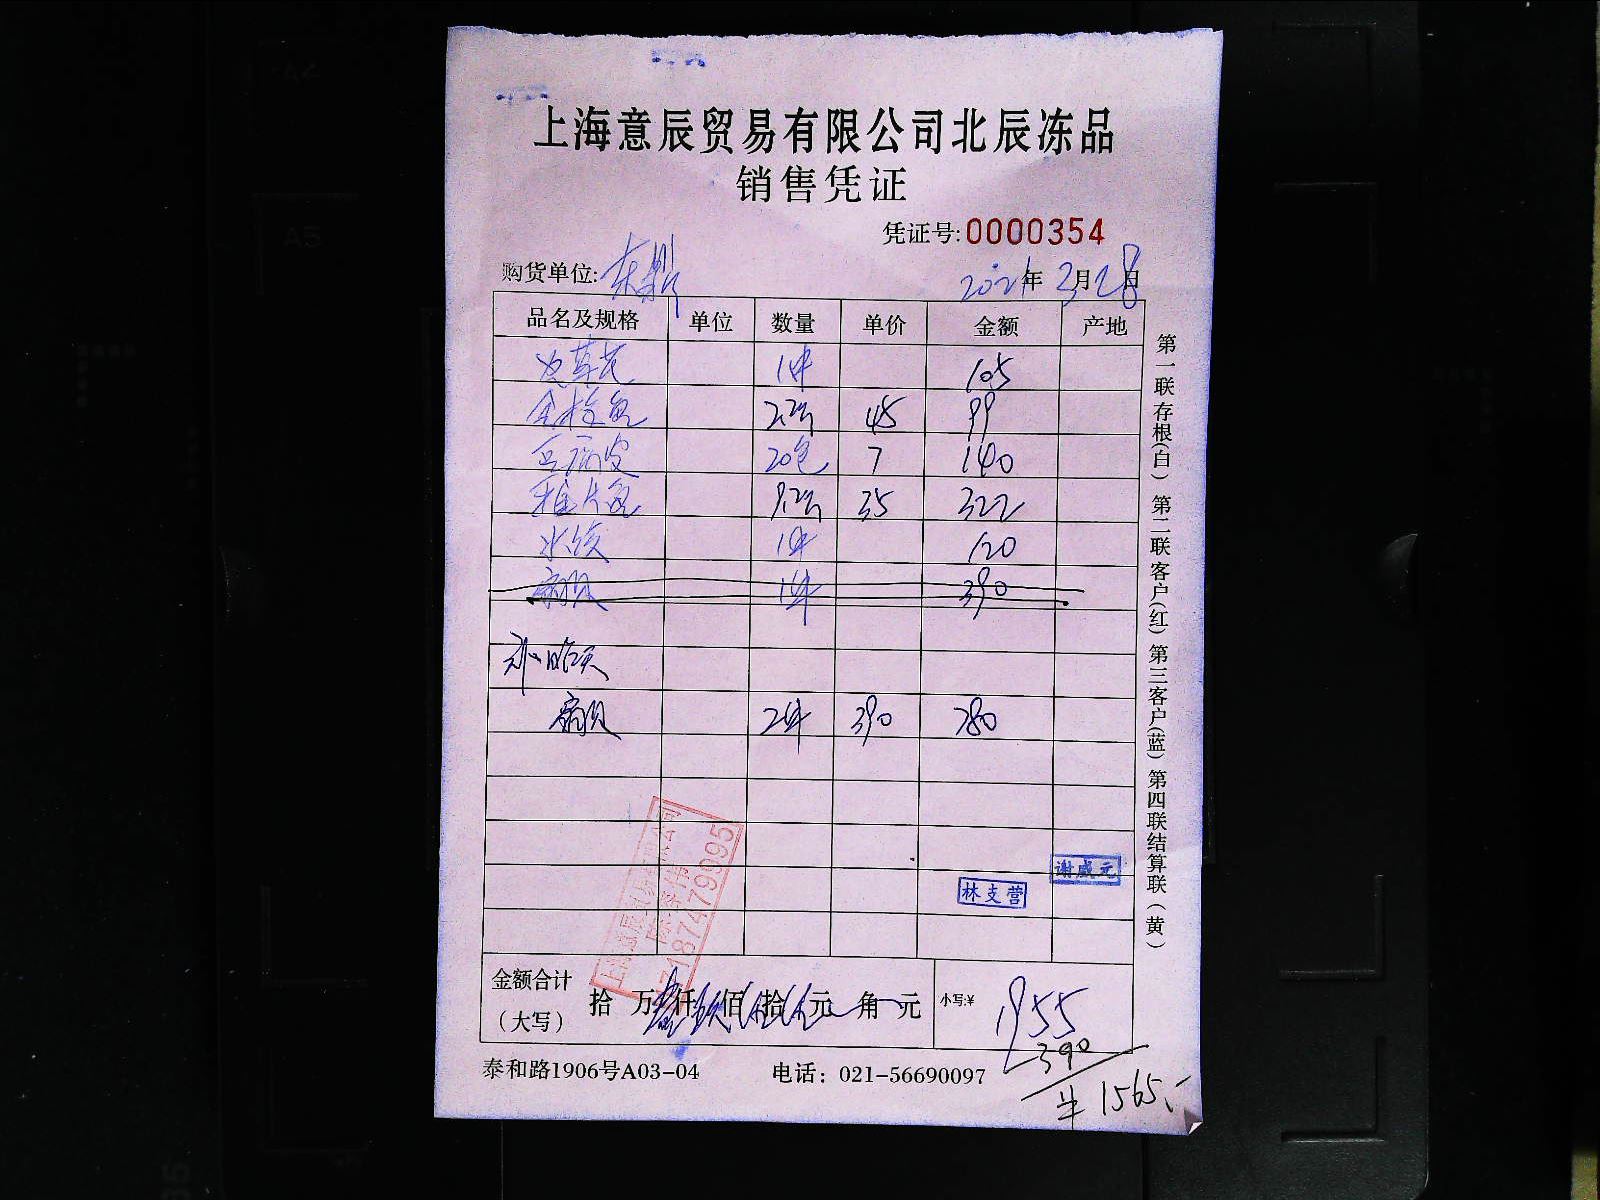 上海意辰贸易有限公司北辰冻品
销售凭证
凭证号:0000354
购货单位:东鼎 2021年3月28日
品名及规格 单位 数量 单价 金额 产地
虫草花 1件 105
金枪鱼 2.2斤 45 99
豆腐皮 20包 7 140
桂片鱼 9.2斤 35 322
水饺 1件 120
扇贝 1件 390
补昨天
扇贝 2件 390 780
谢威元
林支营
1874779995
金额合计
(大写)
拾 万 壹仟玖佰伍拾伍元 角 元
小写:¥ 1955
-390
¥1565.-
泰和路1906号A03-04 电话：021-56690097
第一联存根(白) 第二联客户(红) 第三客户(蓝) 第四联结算联(黄)